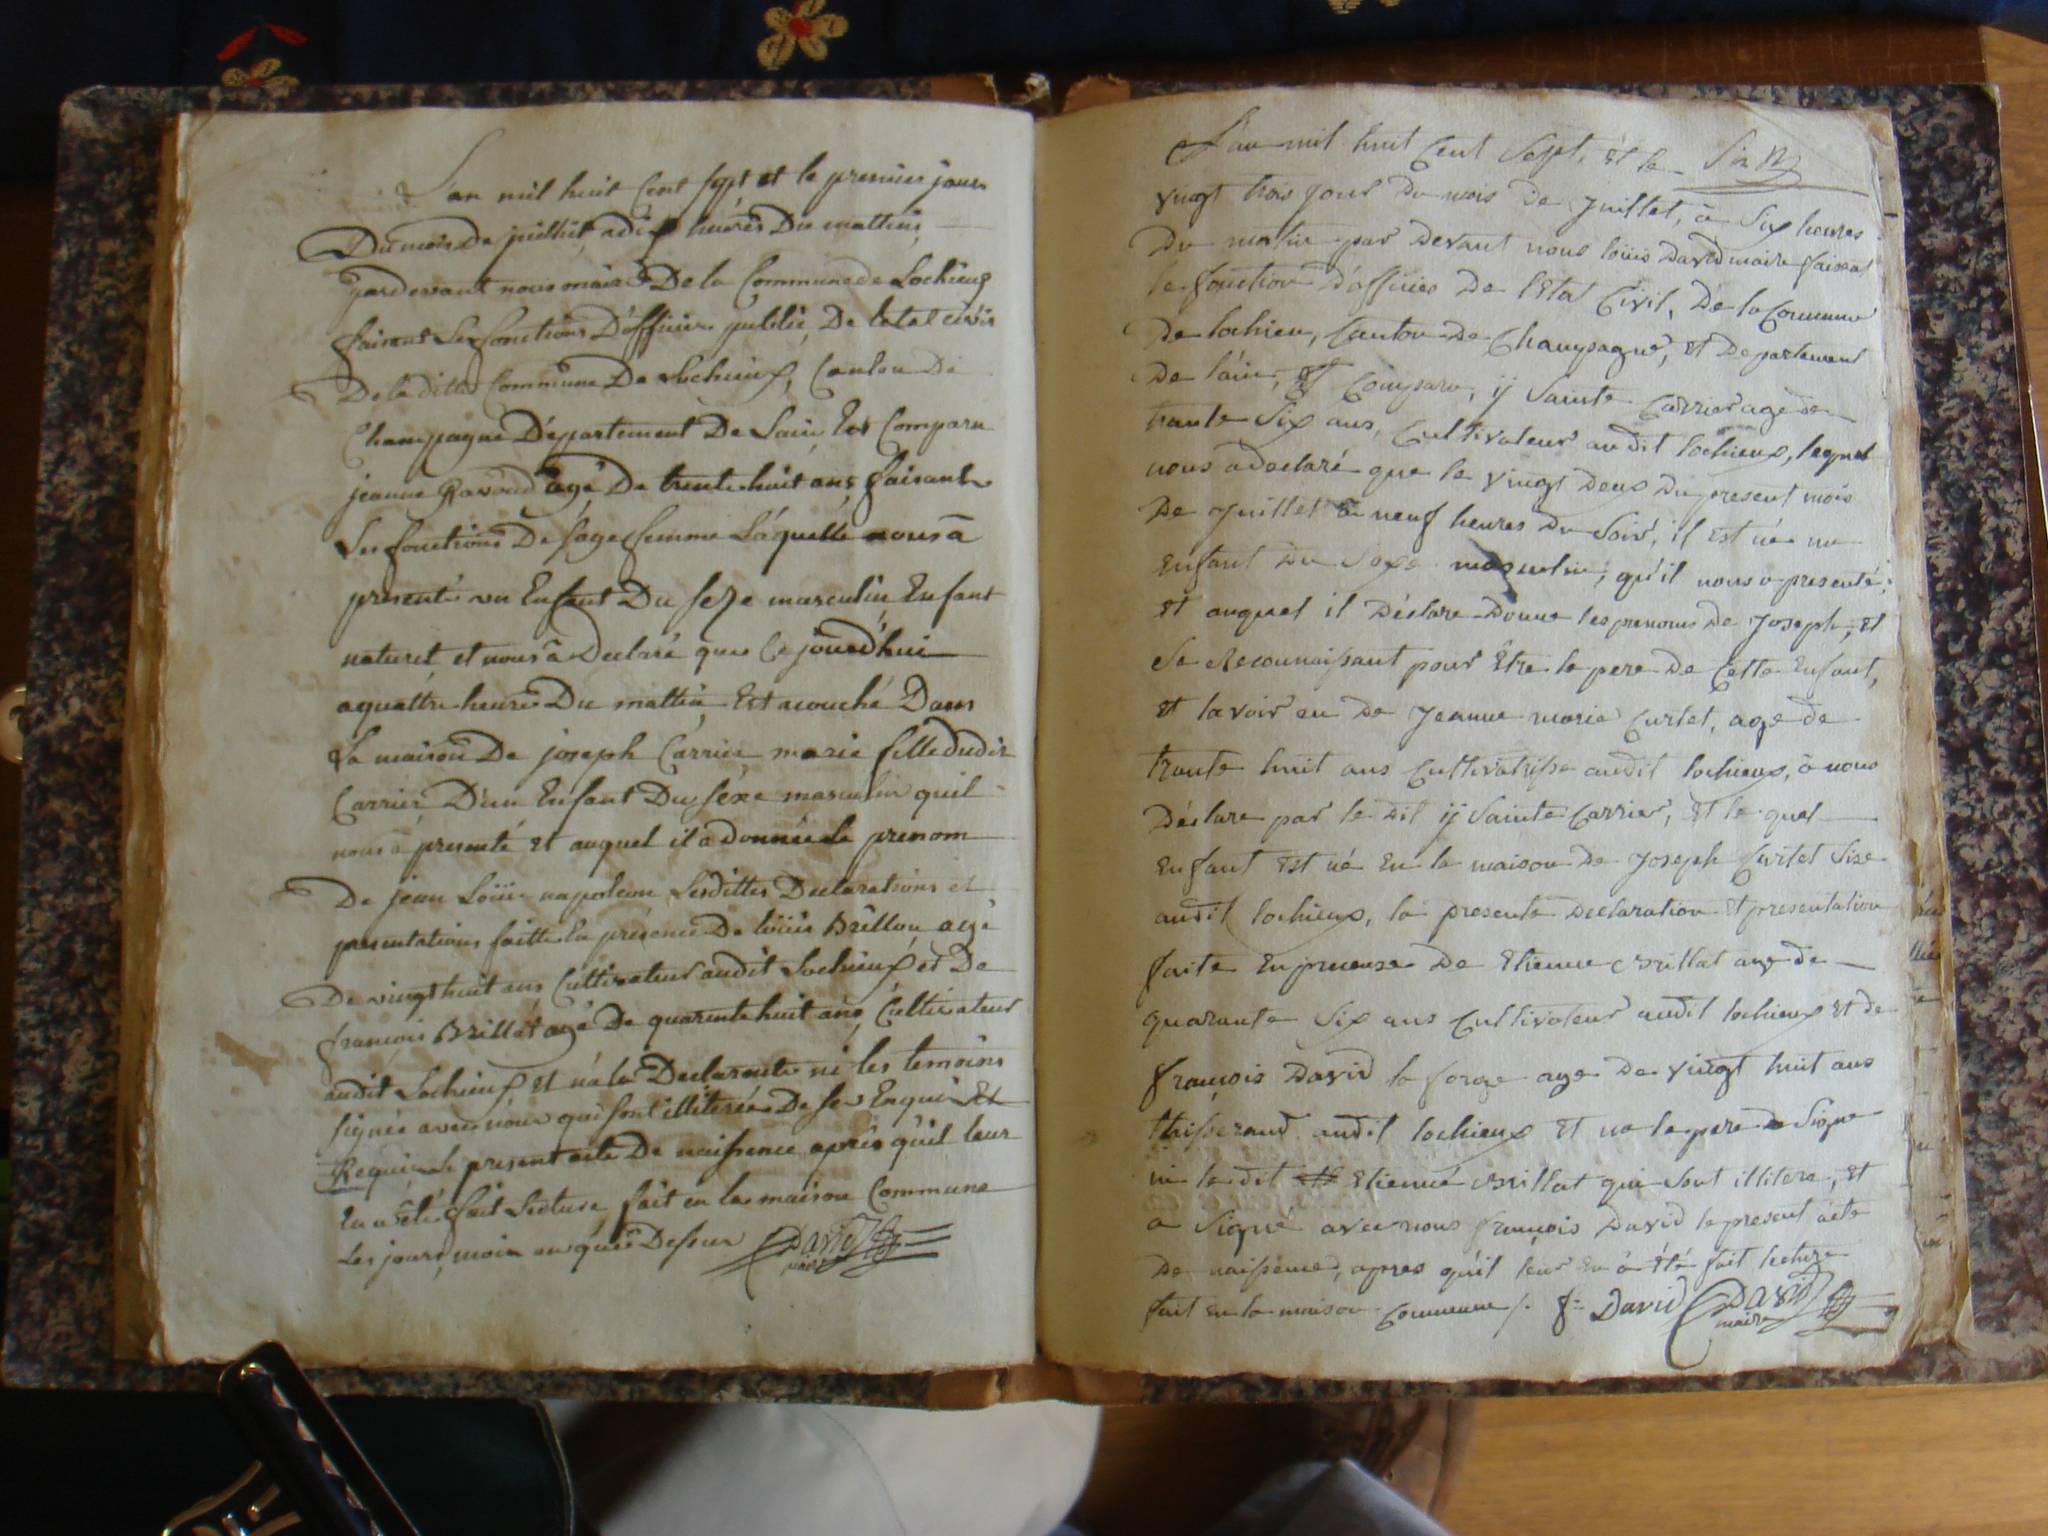 L'an mil huit Cent sept et le premier jour
Du mois De juilliet, adix heures Du mattin,
pardevant nous maire De la Commune de Lochieux
faisant Les fonctions D'officier public De letat civis
De laditte Commune De Lochieux, Canton De
Champagne Département De Lain Est Comparu
jeanne Ravoud agé De trente huit ans faisant
Les fonctions De sage femme Laquelle nous à
presenté un Enfant Du sexe masculin Enfant
naturel et nous à Declaré que Ce jourd'hui
aquattre heures Du mattin Est acouché Dans
La maison De joseph Carrier marie fille dudit
Carrier D'un Enfant Du sexe masculin quil
nous à presenté et auquel il à donnée le prenom
De jean Loüis napoleon Lesdittes Declarations et
presentations faitte En présence De loüis Brillon agé
De vingt huit ans Cultivateur audit Lochieux et De
françois Brillat agé De quarente huit ans Cultivateur
audit Lochieux Et n'a la Declarente ni les temoins
signée avec nous qui sont illiterée De ce Enquis Et
Requis Le present acte De naissence aprés quil leur
En a été fait Lecture fait en la maison Commune
Les jours, mois an que Dessus David
maire
L'an mil huit Cent Sept, et le Six
vingt trois jour Du mois De Juillet, à Six heures
Du matin par Devant nous loüis David maire faisat
le fonction D'afficies De l'Etat Civil, De la Commune
De lochieu, Canton De Champagne, Et Departement
De l'ain, Est Comparu, ij Sainte Carrier age de
trante Six ans, Cultivateur audit lochieux, lequel
nous adeclaré que le vingt Deux Du present mois
De Juillet à neuf heures Du Soir, il Est né un
Enfant Du Sexe masculin, qu'il nous a presenté;
Et auquel il Déclare Donne les prenoms De Joseph, Et
Se Reconnaissant pour Être le pere De Cette Enfant,
Et lavoir eu De Jeanne marie Curtet, age de
trante huit ans Cultivatrisse audit lochieux, à nous
Déclare par le Dit ij Sainte Carrier, Et le quel
Enfant Est né En la maison De Joseph Curtet Size
audit lochieux, la presente Declaration Et presentation
faite En presense De Etienne Brillat age de
quarante Six ans Cultivateur audit lochieux Et de
françois David la forge age De vingt huit ans
thisserand audit lochieux Et na le pere Signe
ni le dit Etienne Brillat qui Sont illitere, Et
a Signé avec nous françois David le present acte
De naissence, apres qu'il leur En à Été fait lecture
fait En la maison Commune /. f= David David
maire